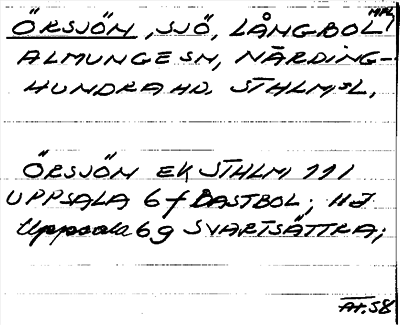 ÖRSJÖN, SJÖ, LÅNGBOL
ALMUNGE SN, NÄRDING-
HUNDRA HD. STHLMSL.
ÖRSJÖN EK STHLM 111
UPPSALA 6 f BASTBOL; 11 J
Uppsala 6 g SVARTSÄTTRA;
AT. 58